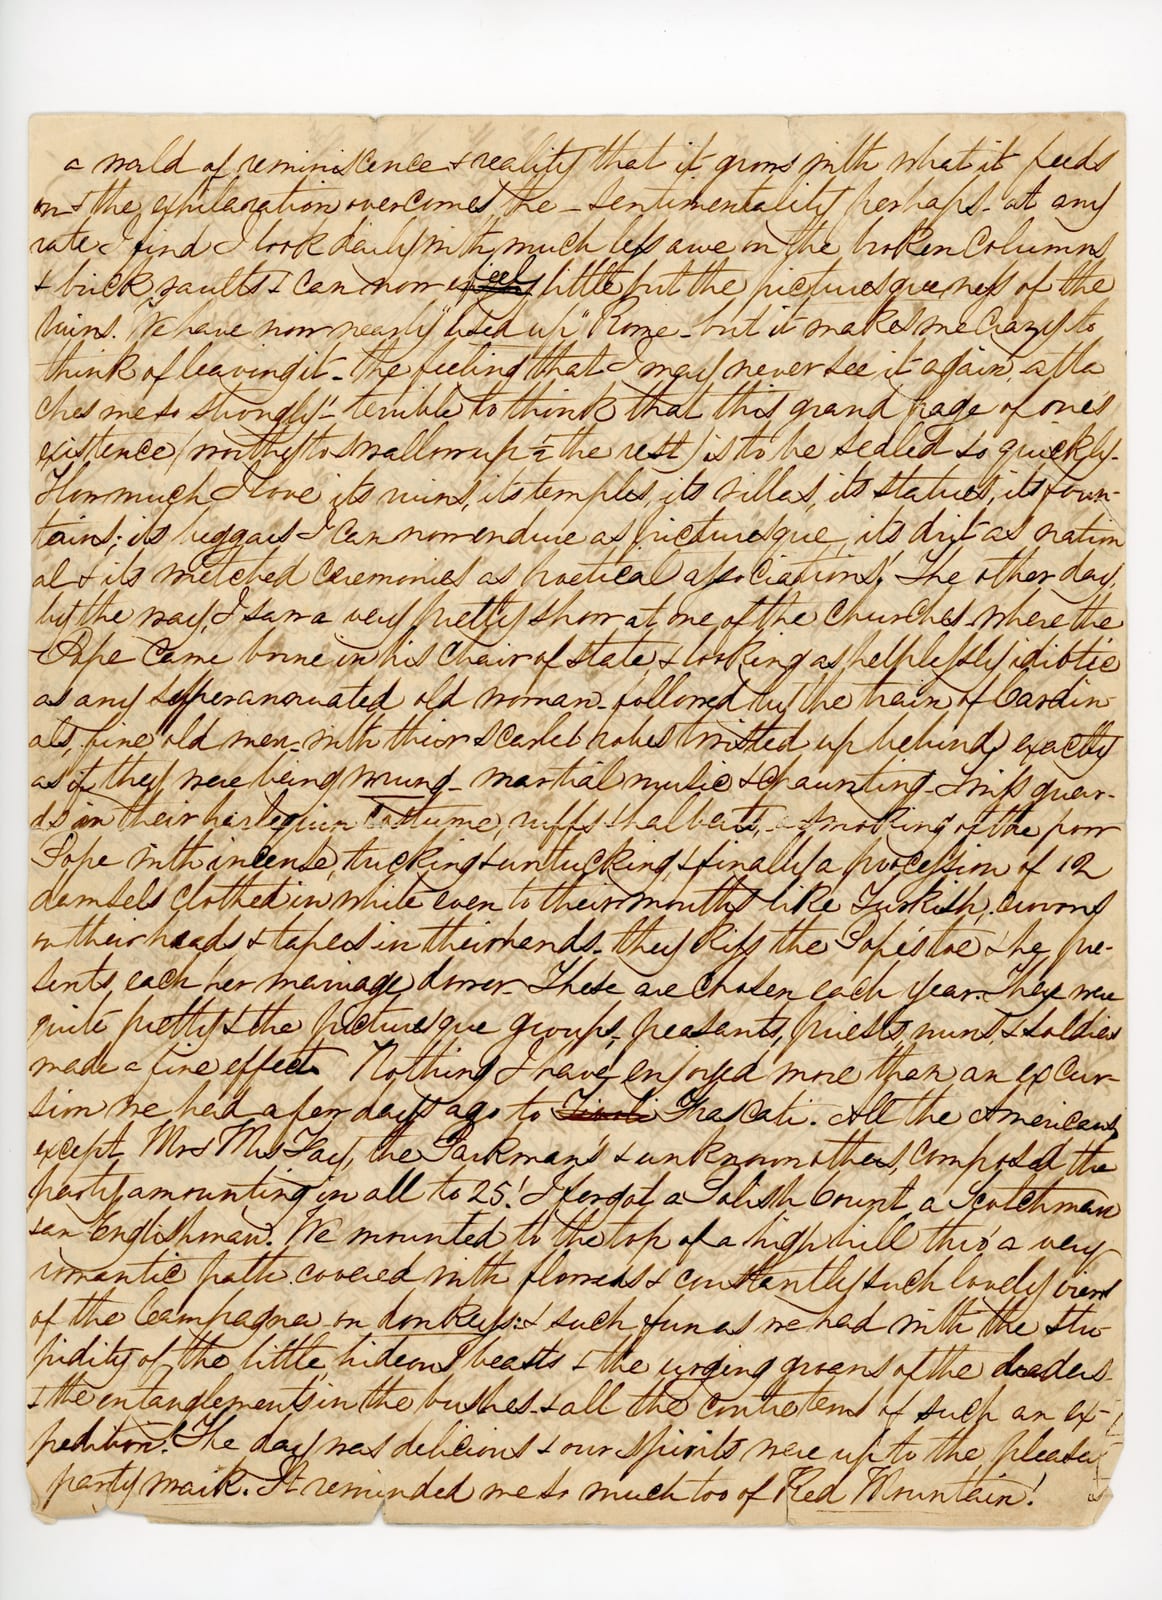 a world of reminiscence & reality that it grows with what it feeds
on & the exhilaration overcomes the sentimentality perhaps - at any
rate I find I look daily with much less awe on the broken columns
& brick vaults & can now feel little but the picturesqueness of the
ruins. We have now nearly "used up" Rome - but it makes me crazy to
think of leaving it - The feeling that I may never see it again atta
ches me so strongly - terrible to think that this grand page of one's
existence (worthy to swallow up the rest) is to be sealed so quickly -
How much I love its ruins, its temples, its villas, its statues, its foun-
tains; its beggars I can now endure as picturesque, its dirt as nation
al & its wretched ceremonies as poetical associations. The other day,
by the way, I saw a very pretty show at one of the churches where the
Pope came borne in his chair of state & looking as helplessly idiotic
as any superannuated old woman - followed by the train of Cardin-
als, fine old men - with their scarlet robes twisted up behind, exactly
as if they were being wrung - martial music & chaunting - Swiss guar-
ds in their harlequin costume, ruffs & halberts, smoking of the poor
Pope with incense, tucking & untucking, & finally a procession of 12
damsels clothed in white even to their mouths like Turkish, crowns
on their heads & tapers in their hands - they kiss the Pope's toe & he pre-
sents each her marriage dower - These are chosen each year. They were
quite pretty & the picturesque groups, peasants, priests, nuns, & soldiers
made a fine effect. Nothing I have enjoyed more than an excur-
sion we had a few days ago to Tivoli Frascati. All the Americans
except Mr & Mrs Fay, the Parkman's & unknown others, composed the
party, amounting in all to 25! I forgot a Polish Count, a Scotchman
& an Englishman. We mounted to the top of a high hill thro' a very
romantic path covered with flowers & constantly such lovely views
of the Campagna on donkeys: & such fun as we had with the stu-
pidity of the little, hideous beasts & the urging groans of the leaders -
& the entanglements in the bushes - & all the contretems of such an ex-
pedition! The day was delicious & our spirits were up to the pleasure
party mark. It reminded me so much too of Red Mountain!